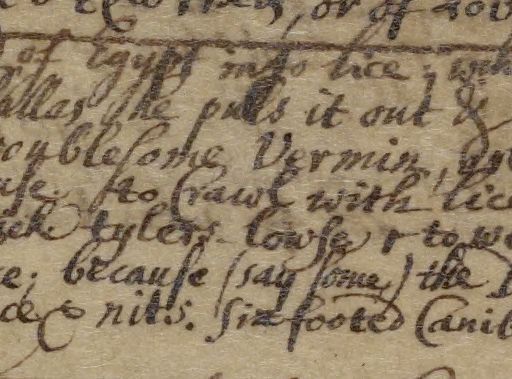 or of
of Egypt into lice; wh
she puls it out &
troublesome Vermin,
to Crawl with lice
tylers lowse & to we
because (say some) the
& nits. Six footed Canib